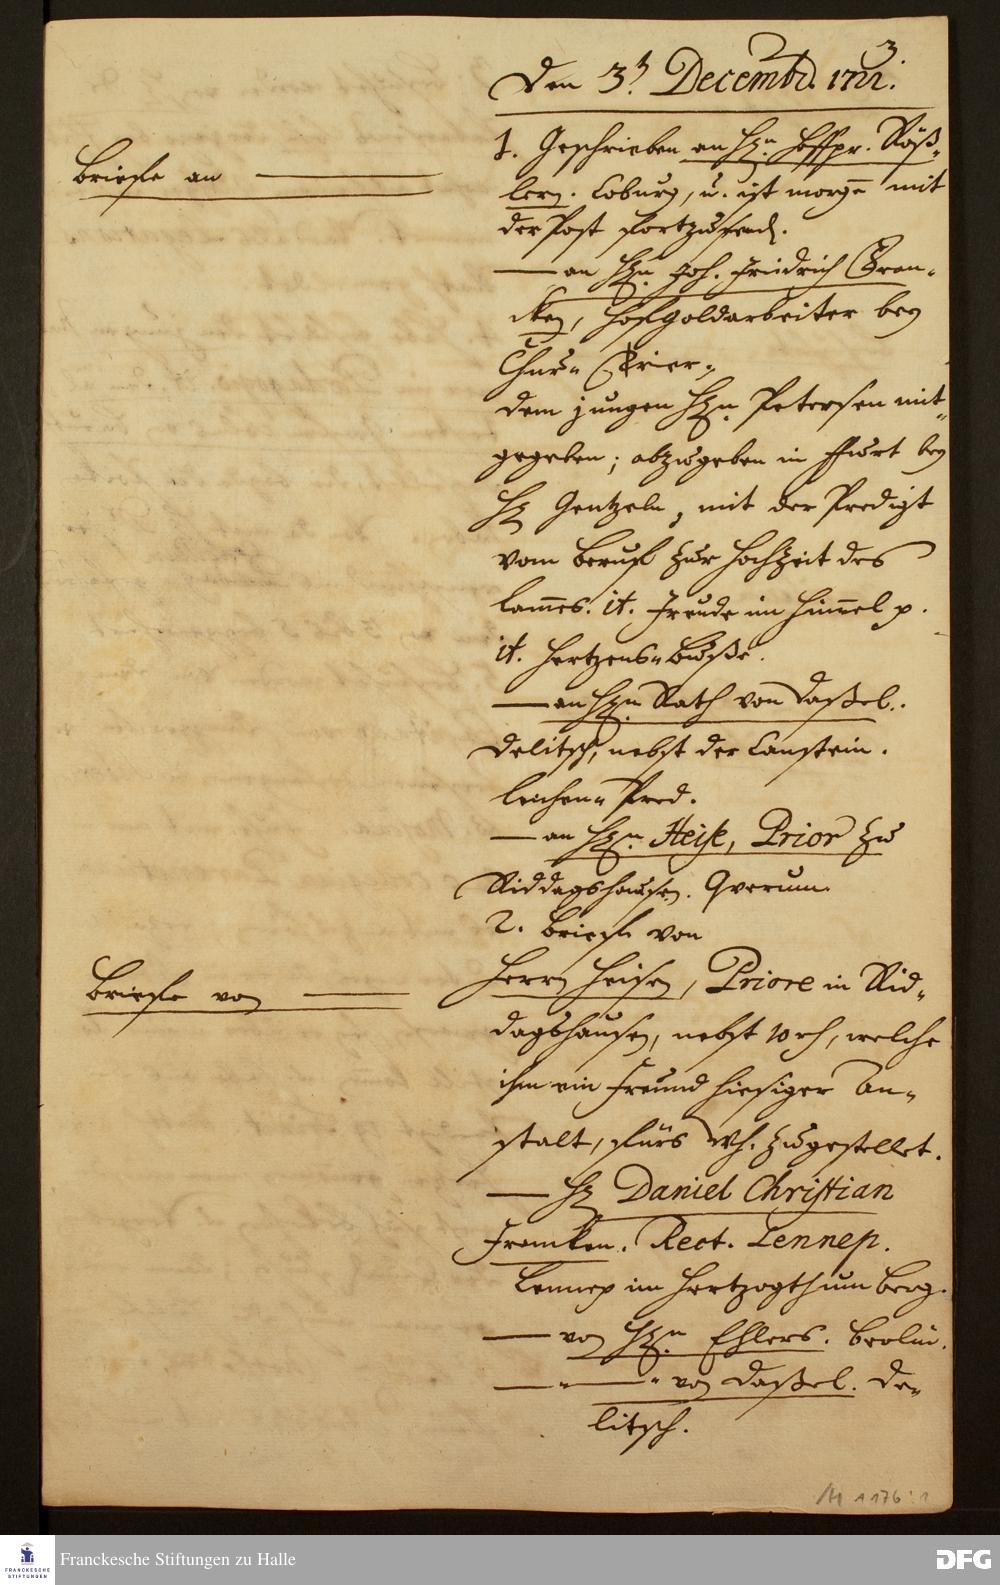 3
Den 3.t Decembr. 1722.
Briefe an
1. Geschrieben an Hrn. Hoffpr. Röß-
lern. Coburg, u. ist morgen mit
der Post fortzusend.
— an Hrn. Joh. Friedrich Fran-
cken, Hofgoldarbeiter bey
Chur- Trier,
dem jungen Hrn. Petersen mit-
gegeben; abzugeben in Ffurt bey
H. Gentzeln, mit der Predigt
vom Beruf zur Hochzeit des
Lammes. it. Freude im Himmel p.
it. Hertzens-Buße.
— an Hrn. Rath von Daßel.
Delitsch, nebst der Canstein.
Leichen-Pred.
— an Hrn. Heise, Prior zu
Riddagshausen. Querum.
2. Briefe von
Briefe von
Herrn Heisen, Priore in Rid-
dagshausen, nebst 10 rh, welche
ihm ein Freund hiesiger An-
stalt, fürs Wh. zugestellet.
— H. Daniel Christian
Francken. Rect. Lennep.
Lennep im Hertzogthum Berg.
— von Hrn. Ehlers. Berlin.
— " — " von Daßel. De-
litsch.
Franckesche Stiftungen zu Halle
FRANCKESCHE
STIFTUNGEN
DFG